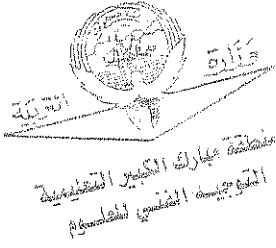 وزارة
التربية
منطقة مبارك الكبير التعليمية
التوجيه الفني للعلوم